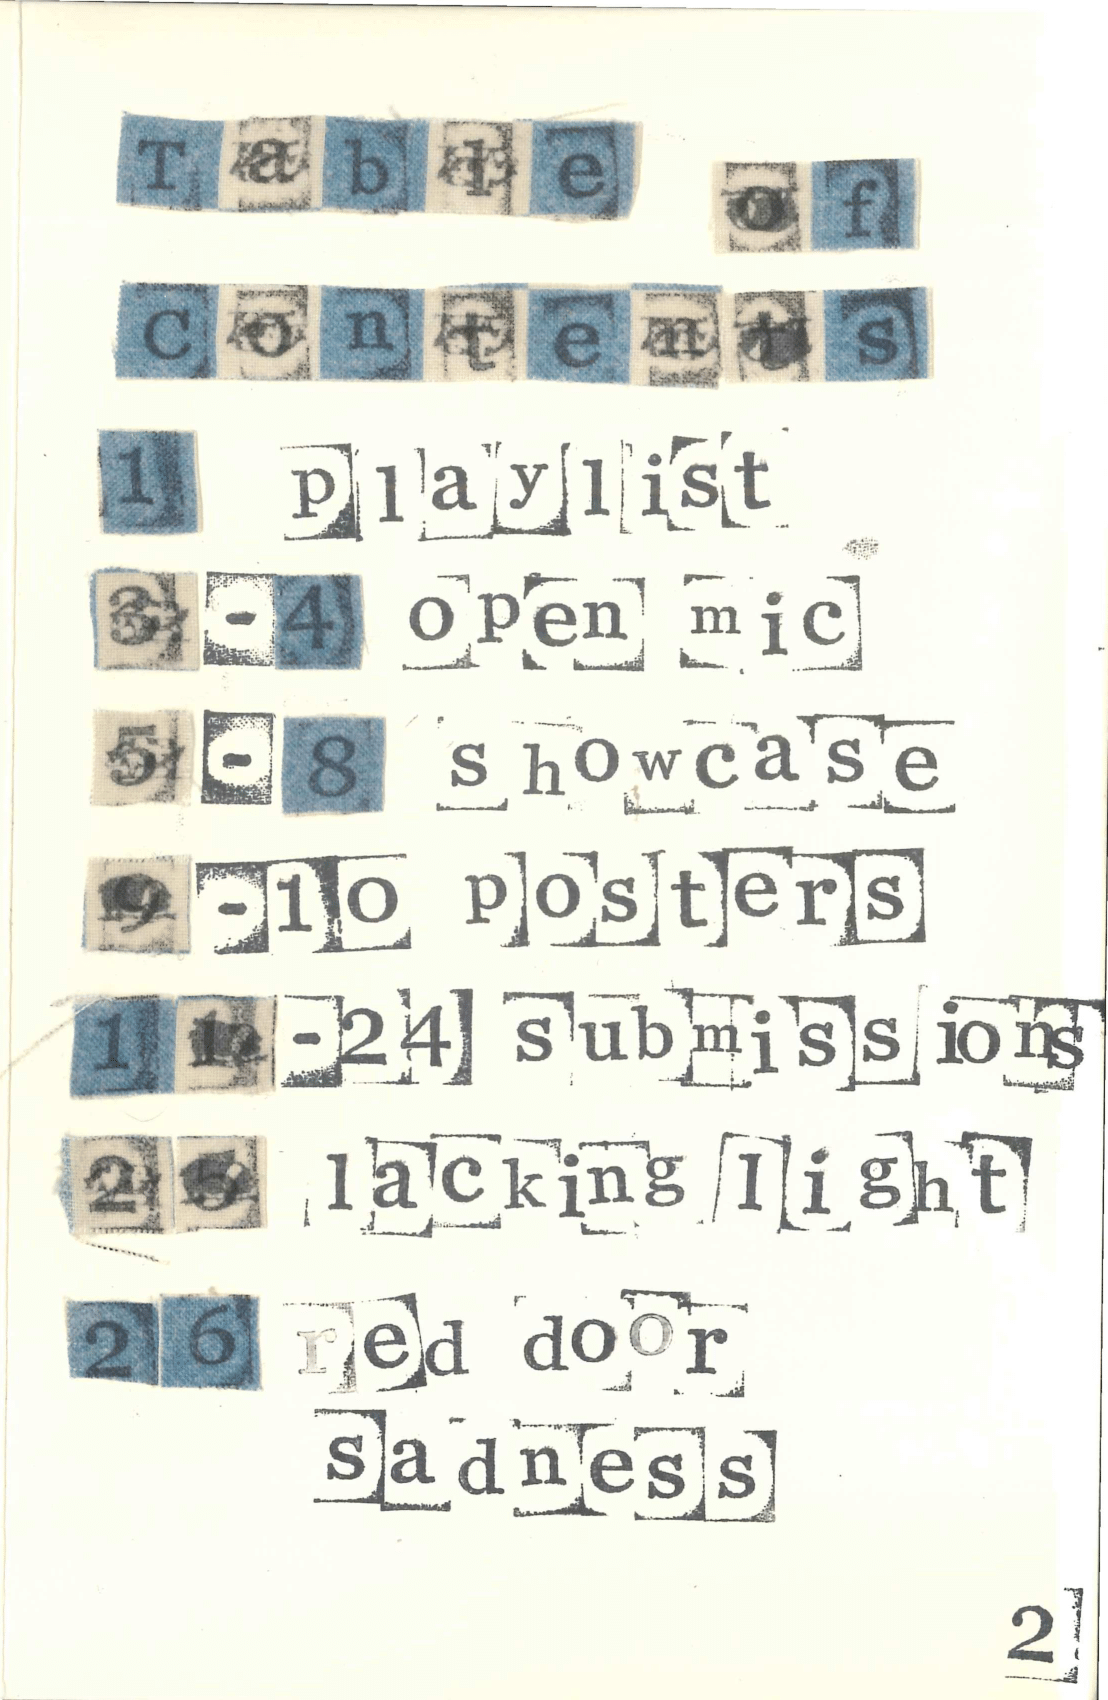 Table of
contents
1 playlist
3-4 open mic
5-8 showcase
9-10 posters
11-24 submissions
25 lacking light
26 red door
sadness
2